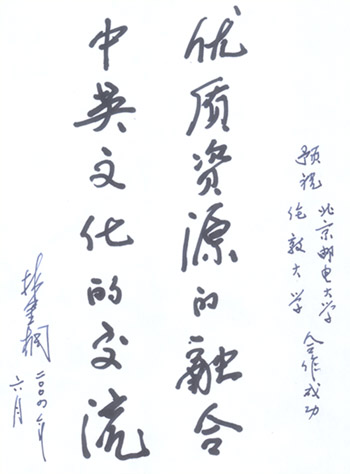 预祝
北京邮电大学
伦敦大学
合作成功
优质资源的融合
中英文化的交流
林金桐
二00四年
六月